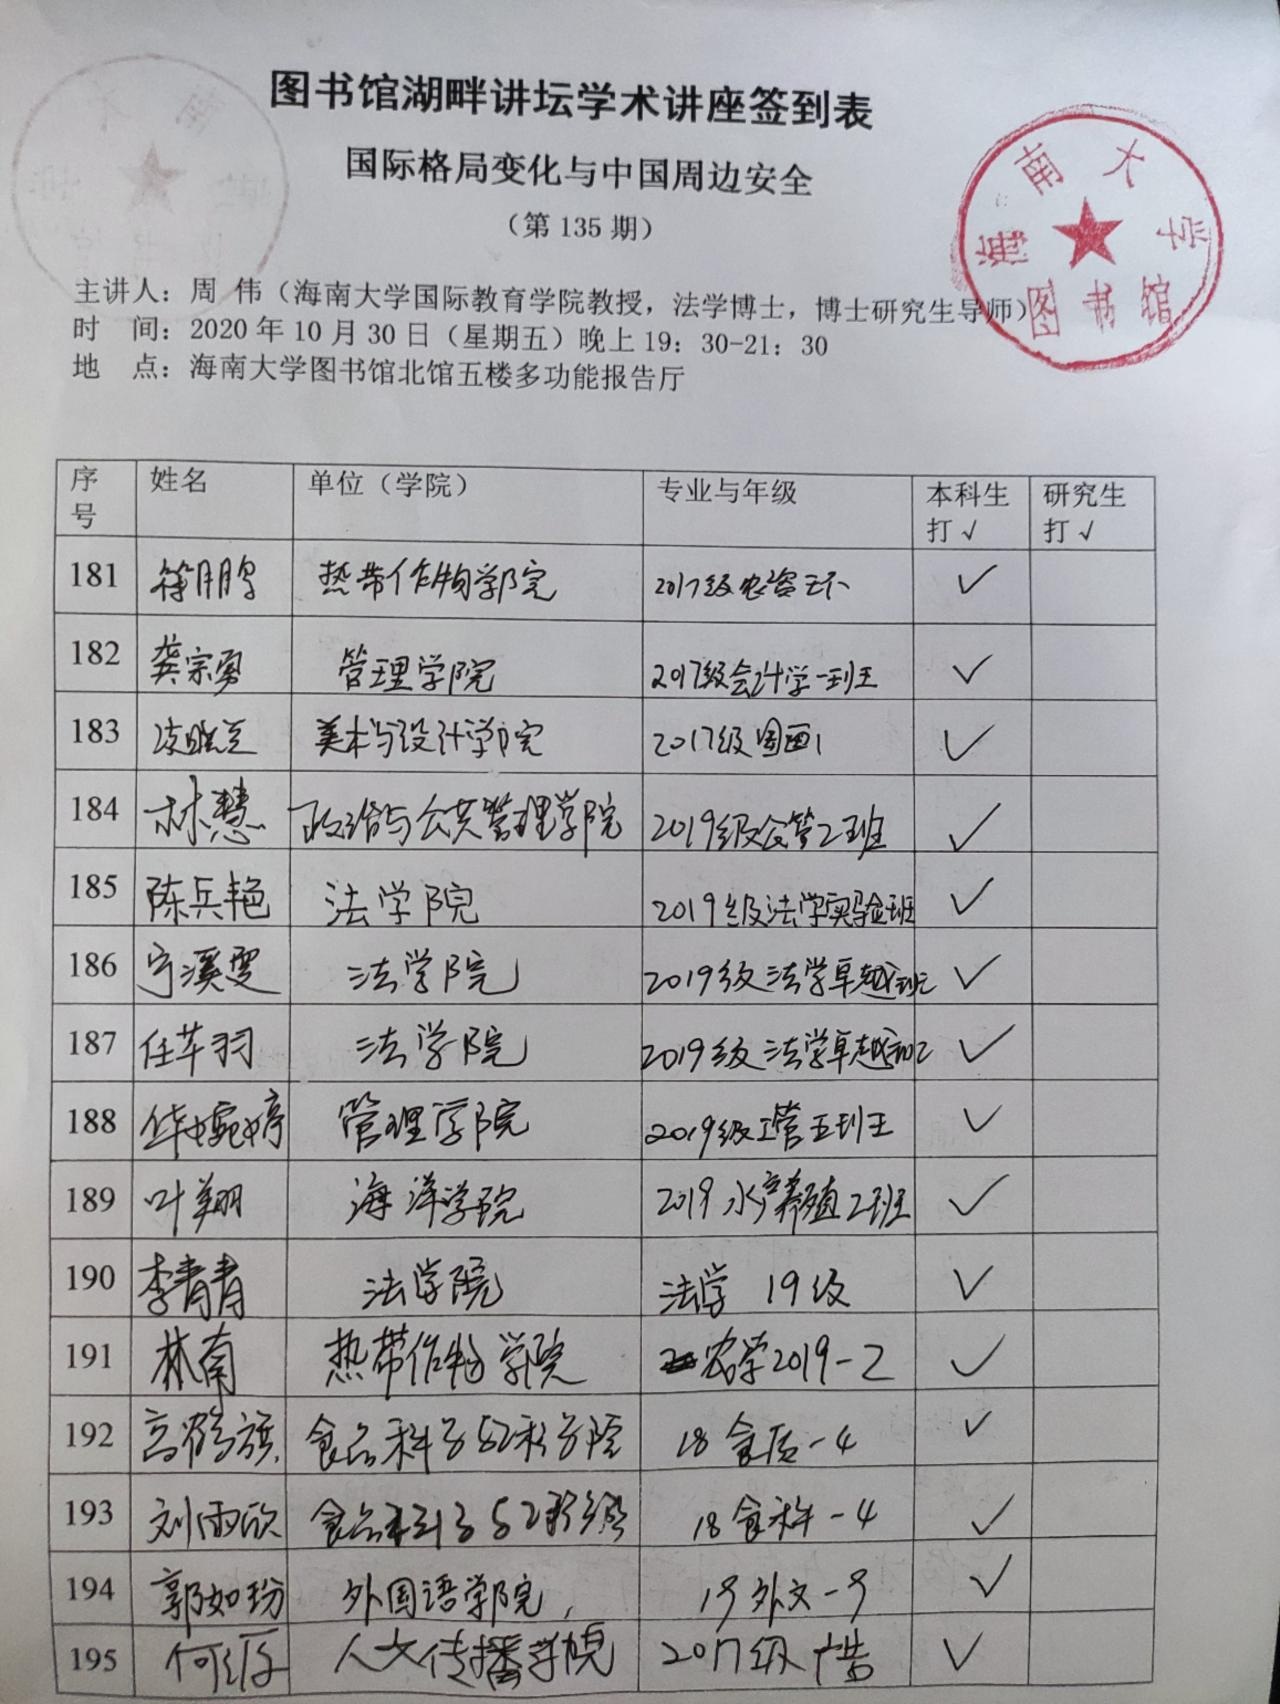 图书馆湖畔讲坛学术讲座签到表
国际格局变化与中国周边安全
（第 135 期）
海南大学
图书馆
主讲人：周 伟（海南大学国际教育学院教授，法学博士，博士研究生导师）
时 间：2020 年 10 月 30 日（星期五）晚上 19：30-21：30
地 点：海南大学图书馆北馆五楼多功能报告厅
序号 姓名 单位（学院） 专业与年级 本科生打√ 研究生打√
181 符明鹏 热带作物学院 2017级农资环 ✓
182 龚宗勇 管理学院 2017级会计学一班 ✓
183 美术与设计学院 2017级国画1 ✓
184 林慧 政治与公共管理学院 2019级公管2班 ✓
185 陈兵艳 法学院 2019级法学实验班 ✓
186 宁溪雯 法学院 2019级法学卓越班2 ✓
187 任芊羽 法学院 2019级法学卓越班2 ✓
188 华婉婷 管理学院 2019级工管五班 ✓
189 叶翔 海洋学院 2019水产养殖2班 ✓
190 李青青 法学院 法学 19级 ✓
191 林南 热带作物学院 农学2019-2 ✓
192 高鹤旗 食品科学与工程学院 18食质-4 ✓
193 刘雨欣 食品科学与工程学院 18食科-4 ✓
194 郭如玢 外国语学院 19外文-9 ✓
195 人文传播学院 2017级广告 ✓